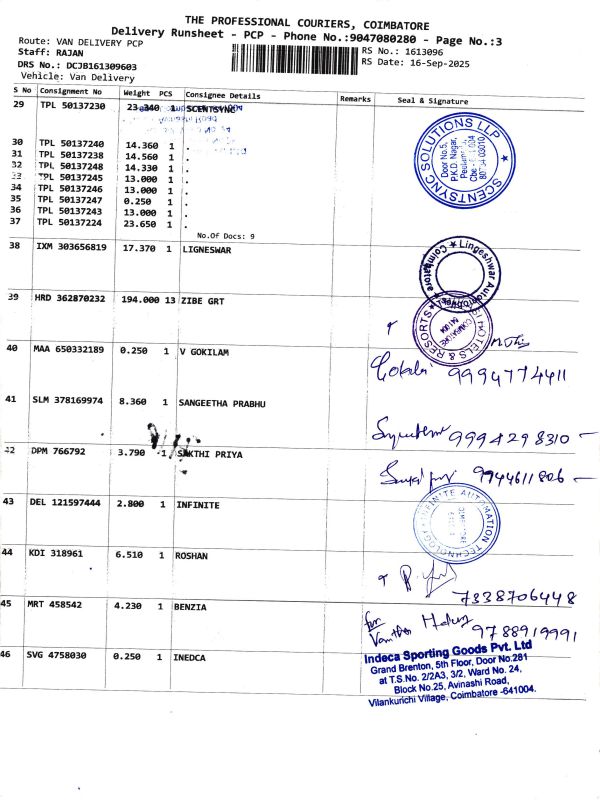 THE PROFESSIONAL COURIERS, COIMBATORE
Delivery Runsheet - PCP - Phone No.:9047080280 - Page No.:3
Route: VAN DELIVERY PCP
Staff: RAJAN
RS No.: 1613096
DRS No.: DCJB161309603
RS Date: 16-Sep-2025
Vehicle: Van Delivery
S No Consignment No Weight PCS Consignee Details Remarks Seal & Signature
29 TPL 50137230 23.340 1 SCENTSYNC
SCENTSYNC SOLUTIONS LLP
Door No.5,
P.K.D. Nagar,
30 TPL 50137240 14.360 1 .
31 TPL 50137238 14.560 1 .
32 TPL 50137248 14.330 1 .
33 TPL 50137245 13.000 1 .
34 TPL 50137246 13.000 1 .
35 TPL 50137247 0.250 1 .
36 TPL 50137243 13.000 1 .
37 TPL 50137224 23.650 1 .
No.Of Docs: 9
38 IXM 303656819 17.370 1 LIGNESWAR
Lingeshwar
Coimbatore
39 HRD 362870232 194.000 13 ZIBE GRT
HOTELS & RESORTS
COIMBATORE
40 MAA 650332189 0.250 1 V GOKILAM
9994774411
41 SLM 378169974 8.360 1 SANGEETHA PRABHU
9994298310
42 DPM 766792 3.790 1 SAKTHI PRIYA
9944611806
43 DEL 121597444 2.800 1 INFINITE
INFINITE AUTOMATION TECHNOLOGY
44 KDI 318961 6.510 1 ROSHAN
7338706448
45 MRT 458542 4.230 1 BENZIA
for
9788919991
46 SVG 4758030 0.250 1 INEDCA
Indeca Sporting Goods Pvt. Ltd
Grand Brenton, 5th Floor, Door No.281
at T.S.No. 2/2A3, 3/2, Ward No. 24,
Block No.25, Avinashi Road,
Vilankurichi Village, Coimbatore -641004.